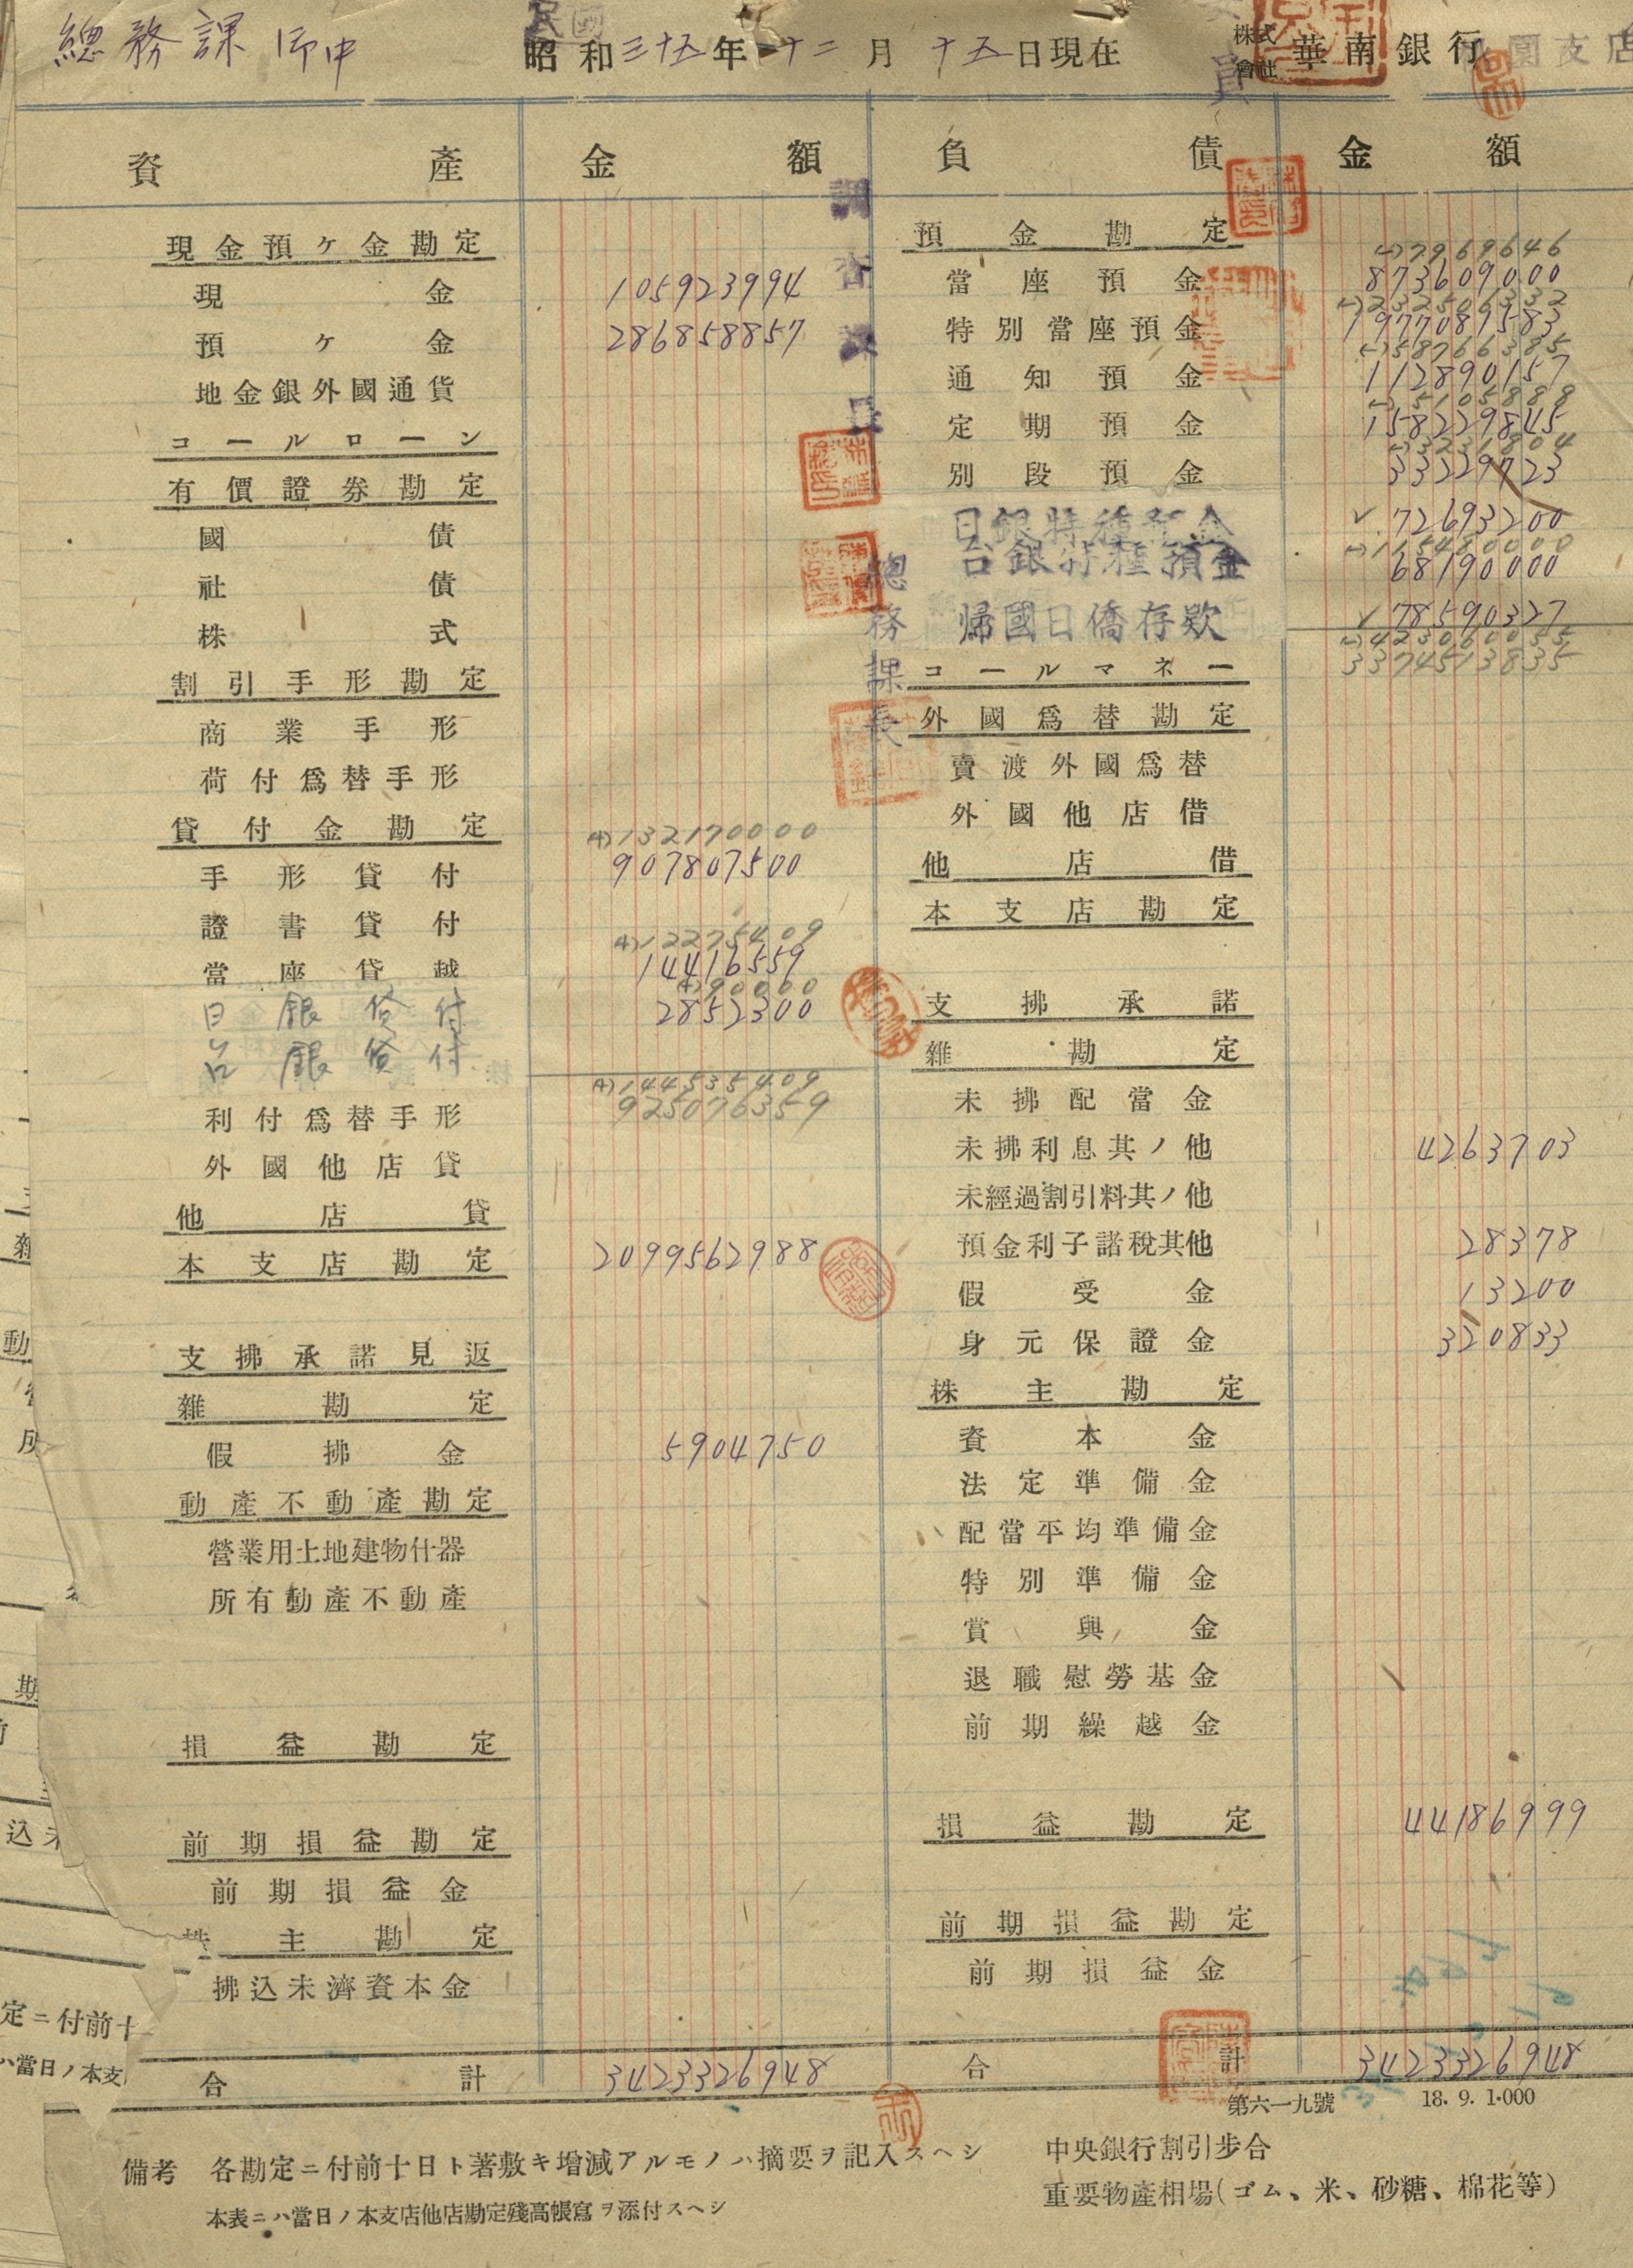 總務課 御中
民國
昭和三十五年十二月十五日現在
株式會社 華南銀行 園支店
資產 金額 負債 金額
現金預ケ金勘定
現金 105923994
預ケ金 286858857
地金銀外國通貨
コールローン
有價證券勘定
國債
社債
株式
割引手形勘定
商業手形
荷付爲替手形
貸付金勘定
(+)132170000
手形貸付 907807500
證書貸付
(+)12275409
當座貸越 14416559
(+)90000
日銀貸付 2852300
台銀貸付
(+)144535409
925076359
利付爲替手形
外國他店貸
他店貸
本支店勘定 2099562988
支拂承諾見返
雜勘定
假拂金 5904750
動產不動產勘定
營業用土地建物什器
所有動產不動產
損益勘定
前期損益勘定
前期損益金
株主勘定
拂込未濟資本金
合計 3423326948
調査課長
總務課長
預金勘定
(-)7969646
當座預金 873609000
(-)232506332
特別當座預金 197708958
(-)58766385
通知預金 112890157
(-)5105888
定期預金 158229845
(-)3231804
別段預金 33229723
日銀特種預金 72693200
(-)115480000
台銀特種預金 68190000
帰國日僑存欵 78590327
(-)423060055
3374513835
コールマネー
外國爲替勘定
賣渡外國爲替
外國他店借
他店借
本支店勘定
支拂承諾
雜勘定
未拂配當金
未拂利息其ノ他 4263703
未經過割引料其ノ他
預金利子諸稅其他 28378
假受金 13200
身元保證金 320833
株主勘定
資本金
法定準備金
配當平均準備金
特別準備金
賞與金
退職慰勞基金
前期繰越金
損益勘定 44186999
前期損益勘定
前期損益金
合計 3423326948
第六一九號 18.9.1.000
備考 各勘定ニ付前十日ト著敷キ增減アルモノハ摘要ヲ記入スヘシ
本表ニハ當日ノ本支店他店勘定殘高帳寫ヲ添付スヘシ
中央銀行割引步合
重要物產相場(ゴム、米、砂糖、棉花等)
定ニ付前十
ハ當日ノ本支